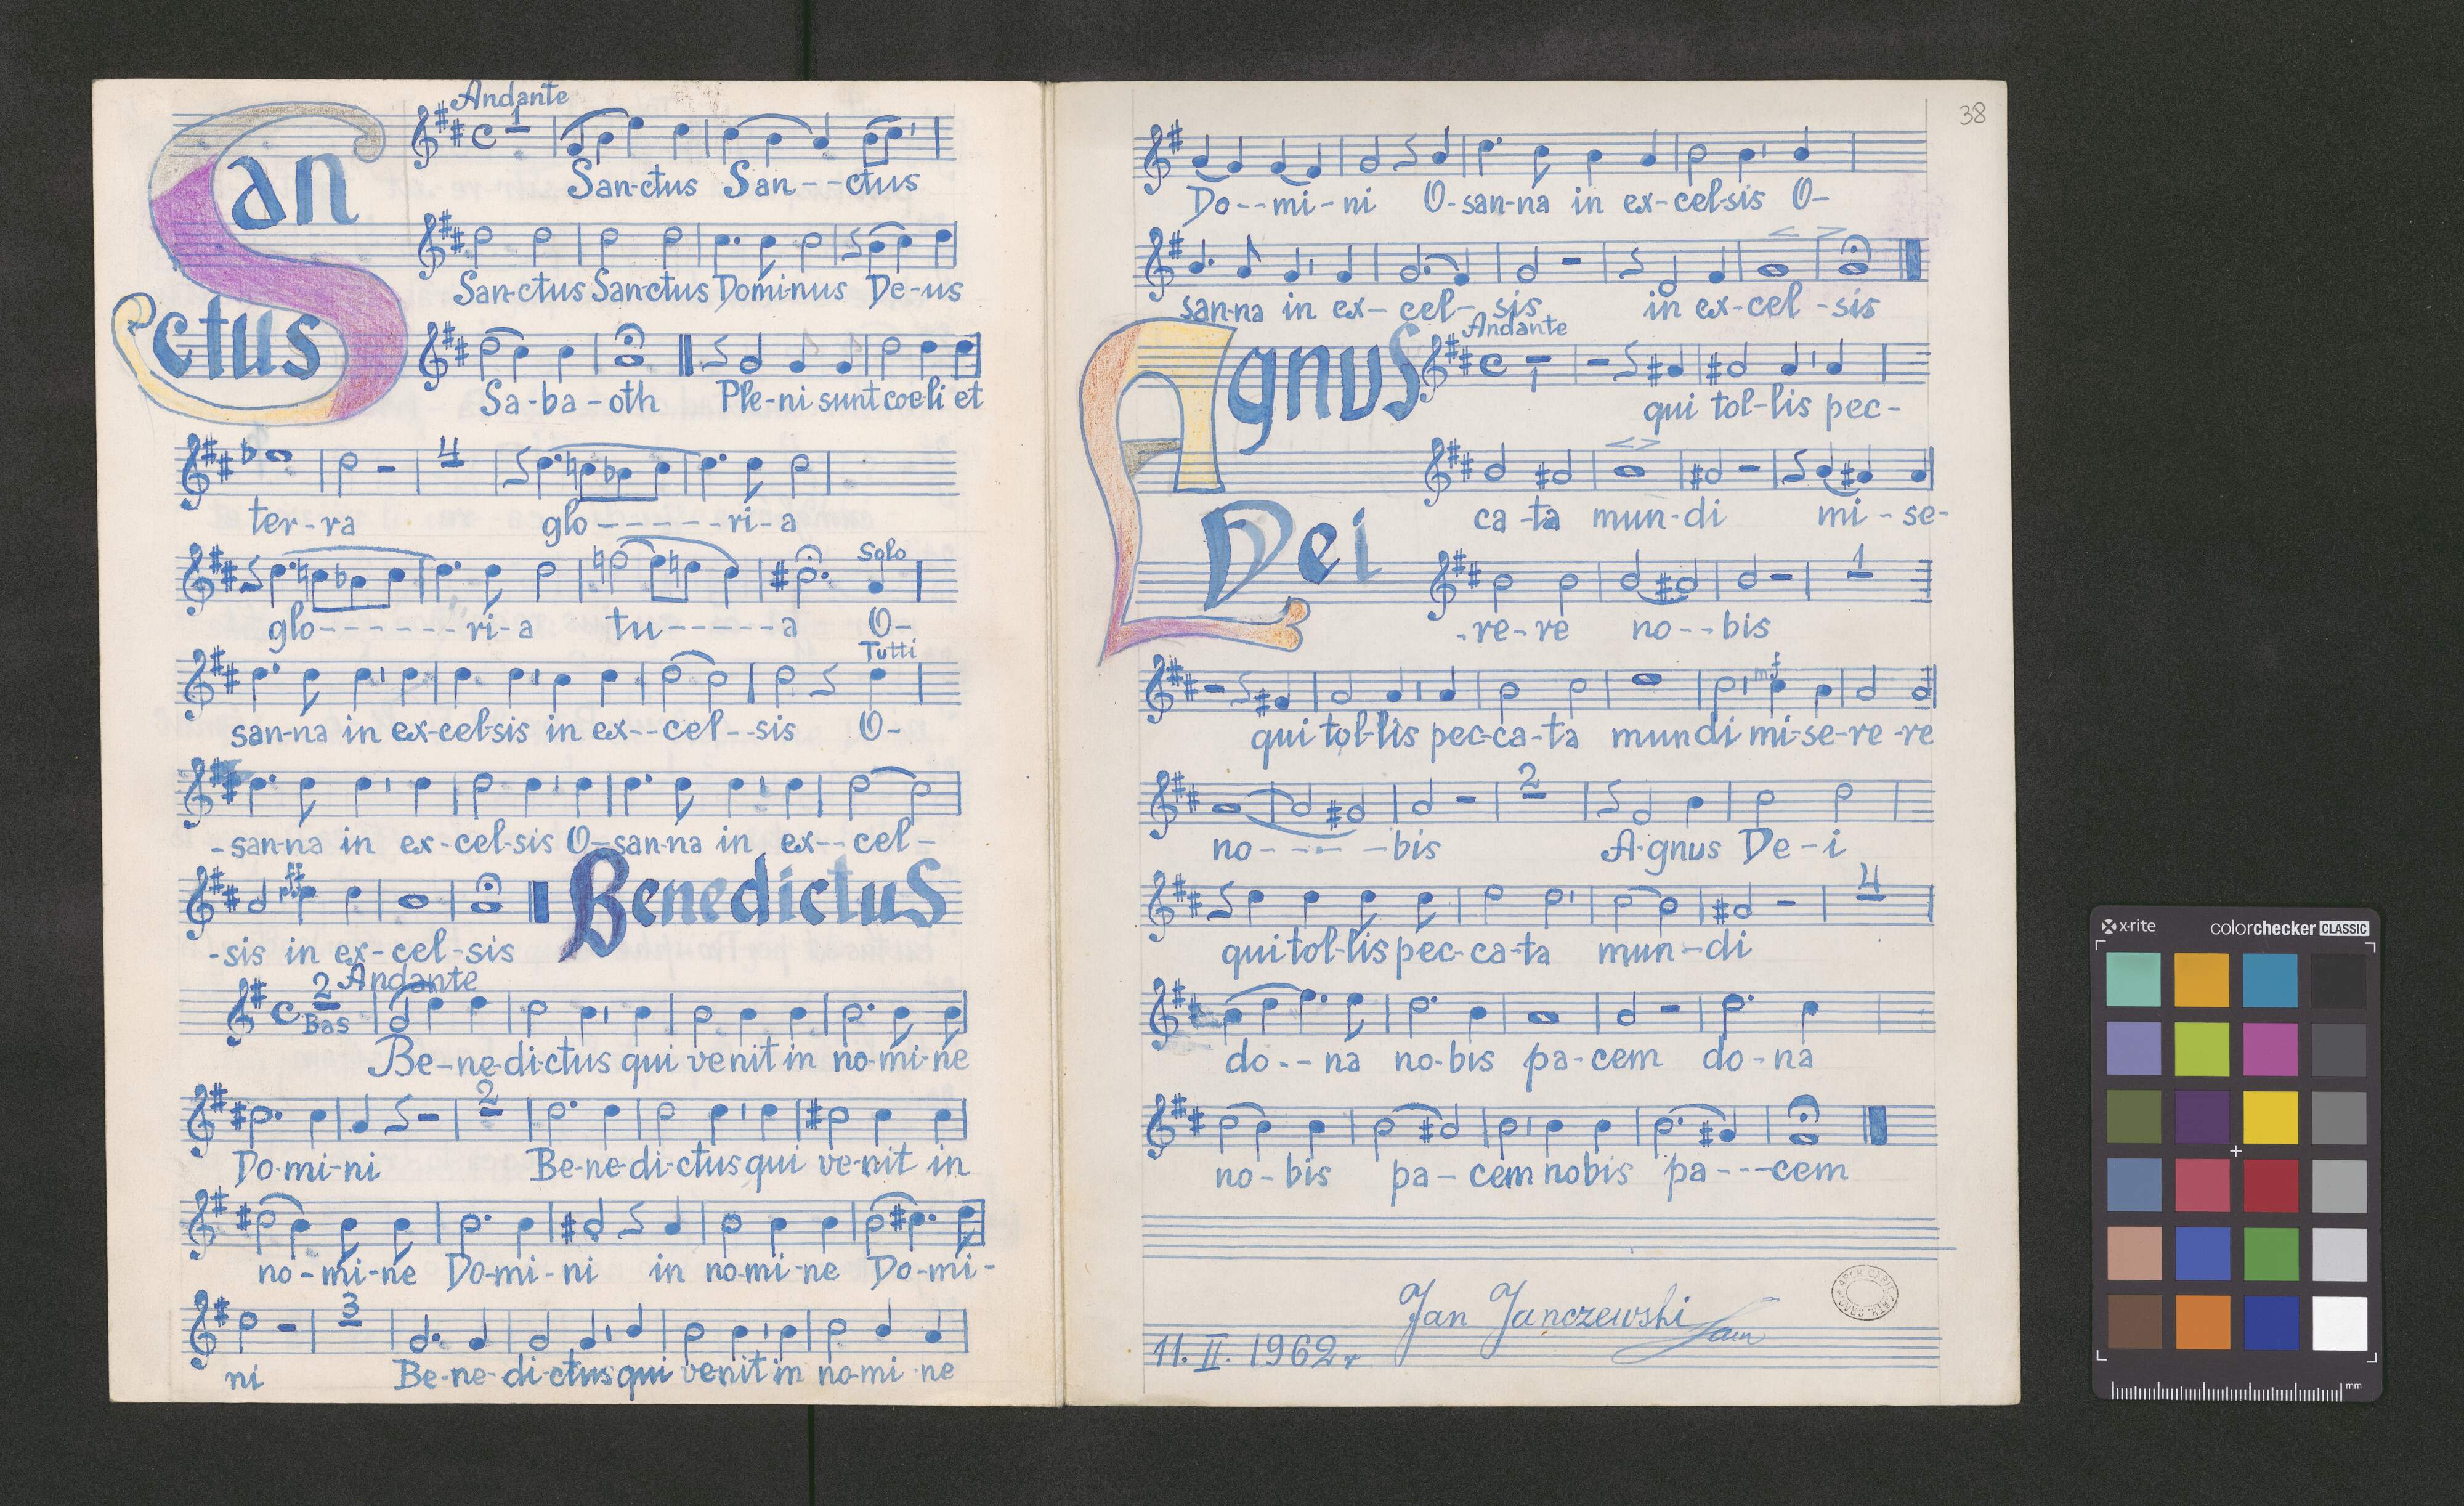 Sanctus
Andante
1
San-ctus San--ctus
San-ctus Sanctus Dominus De-us
Sa-ba-oth Ple-ni sunt coe-li et
4
ter-ra glo------ri-a
Solo
glo------ri-a tu-----a O-
Tutti
san-na in ex-cel-sis in ex--cel--sis O-
-san-na in ex-cel-sis O-san-na in ex--cel-
ff
-sis in ex-cel-sis
Benedictus
Andante
2
Bas
Be-ne-di-ctus qui venit in no-mi-ne
2
Do-mi-ni Be-ne-di-ctus qui ve-nit in
no-mi-ne Do-mi-ni in no-mi-ne Do-mi-
3
ni Be-ne-di-ctus qui venit in no-mi-ne
38
Do--mi-ni O-san-na in ex-cel-sis O-
san-na in ex-cel-sis in ex-cel-sis
Agnus Dei
Andante
1
qui tol-lis pec-
ca-ta mun-di mi-se-
1
-re-re no--bis
mf
qui tol-lis pec-ca-ta mundi mi-se-re-re
2
no----bis A-gnus De-i
4
qui tol-lis pec-ca-ta mun-di
do--na no-bis pa-cem do-na
no-bis pa-cem nobis pa---cem
Jan Janczewski
11. II. 1962 r
x-rite colorchecker CLASSIC
mm